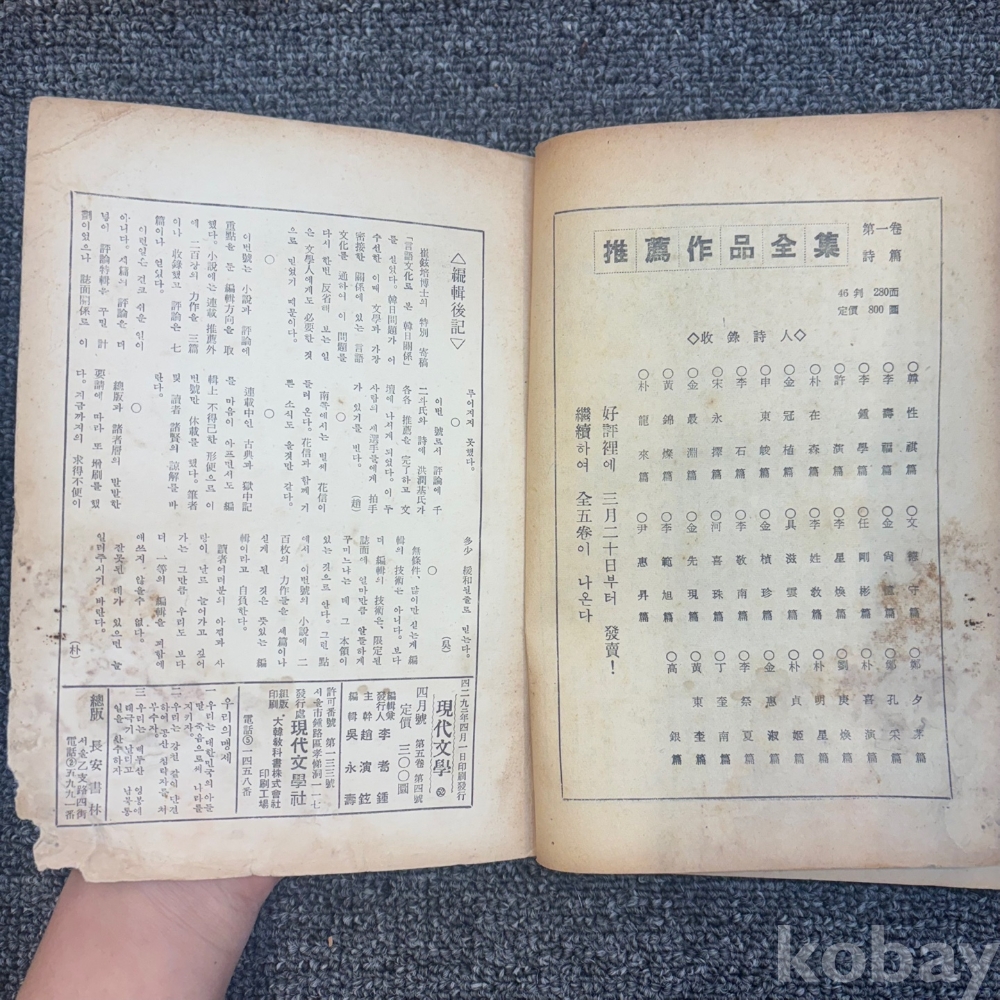 推薦作品全集
第一卷
詩篇
46判 280面
定價 800圜
◇收錄詩人◇
○韓性祺篇
○李壽福篇
○李鍾學篇
○許演篇
○朴在森篇
○金冠植篇
○申東峻篇
○李石篇
○宋永擇篇
○金最淵篇
○黃錦燦篇
○朴龍來篇
○文德守篇
○金尙憶篇
○任剛彬篇
○李星煥篇
○李姓敎篇
○具滋雲篇
○金楨珍篇
○李敬南篇
○河喜珠篇
○金先現篇
○李範旭篇
○尹惠昇篇
○鄭孔采篇
○朴喜演篇
○劉庚煥篇
○朴明星篇
○朴貞姬篇
○金惠淑篇
○李祭夏篇
○丁奎南篇
○黃東奎篇
○高銀篇
好評裡에 三月二十日부터 發賣!
繼續하여 全五卷이 나온다
△編輯後記▽
崔鉉培博士의 特別 寄稿
「言語文化로 본 韓日關係」
를 실렸다. 韓日問題가 어
수선한 이때 文學과 가장
密接한 關係에 있는 言語
文化를 通하여 이 問題를
다시 한번 反省해 보는 일
은 文學人에게도 必要한 것
으로 믿었기 때문이다.
○
이번號는 小說과 評論에
重點을 둔 編輯方向을 取
했다. 小說에는 連載 推薦外
에 二百張의 力作을 三篇
이나 收錄했고 評論은 七
篇이나 얹었다.
이런일은 결코 쉬운 일이
아니다. 세篇의 評論은 더
넣어 評論特輯을 꾸밀 計
劃이었으나 誌面關係로 이
루어지지 못했다.
○
이번 號로서 評論에 千
二斗氏와 詩에 洪潤基氏가
各各 推薦을 完了하고 文
壇에 나서게 되었다. 이 두
사람의 새選手들에게 拍手
가 있기를 빈다. (趙)
○
南쪽에서는 벌써 花信이
들려 온다. 花信과 함께 기
쁜 소식도 올것만 같다.
○
連載中인 古典과 獄中記
를 마음이 아프면서도 編
輯上 不得已한 形便으로 이
번號만 休載를 했다. 筆者
및 讀者 諸賢의 諒解를 바
란다.
○
總版과 諸者層의 빨발한
要請에 따라 또 增刷를 했
다. 지금까지의 求得不便이
多少 援和될줄로 믿는다.
(吳)
○
無條件, 많이만 싣는게 編
輯의 技術은 아니다. 보다
더 編輯의 技術은, 限定된
誌面에 얼마만큼 알뜰하게
꾸미느냐는 데 그 本領이
있는 것으로 안다. 그런 點
에서 이번號의 小說에 二
百枚의 力作들을 세篇이나
싣게 된 것은 뜻있는 編
輯이라고 自負한다.
讀者여러분의 아낌과 사
랑이 날로 늘어가고 짙어
가는 그만큼 우리도 보다
더 一等의 編輯을 꾀함에
애쓰지 않을수 없다.
잘못된 데가 있으면 늘
일러주시기 바란다.
(朴)
四二九二年四月一日印刷發行
現代文學
四月號 第五卷 第四號
定價 三〇〇圜
編輯兼發行人 李耉鍾
主幹 趙演鉉
編輯 吳永壽
許可番號 第一三三號
서울市鍾路區孝悌洞一一七
發行處 現代文學社
組版印刷 大韓敎科書株式會社印刷工場
電話③一四五八番
우리의맹제
一 우리는 대한민국의아들
딸 죽음으로써 나라를
지키자.
二 우리는 강철 같이 단결
하여 공산 침략자를 쳐
부수자.
三 우리는 백두산 영봉에
태극기 날리고 남북통
일을 완수하자
總版 長安書林
서울乙支路四街
電話②五九九一番
kobay